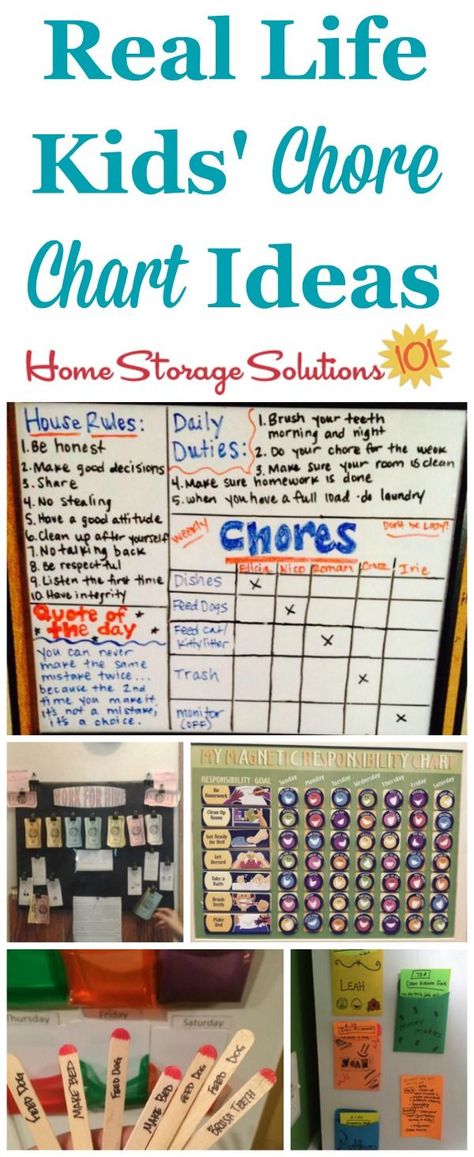 Real Life
Kids' Chore
Chart Ideas
Home Storage Solutions 101
House Rules:
1. Be honest
2. Make good decisions
3. Share
4. No stealing
5. Have a good attitude
6. Clean up after yourself
7. No talking back
8. Be respectful
9. Listen the first time
10. Have integrity
Quote of
the day
you can never
make the same
mistake twice...
because the 2nd
time you make it,
it's not a mistake,
it's a choice.
Daily
Duties:
1. Brush your teeth
morning and night
2. Do your chore for the week
3. Make sure your room is clean
4. Make sure homework is done
5. when you have a full load - do laundry
weekly
Chores
Don't be lazy!
Elicia Nico Roman Cruz Irie
Dishes X
Feed Dogs X
Feed cat/
Kitty litter X
Trash X
monitor
(OFF) X
MY MAGNETIC RESPONSIBILITY CHART
RESPONSIBILITY - GOAL Sunday Monday Tuesday Wednesday Thursday Friday Saturday
Do Homework
Clean Up Room
Get Ready for Bed
Get Dressed
Take a Bath
Brush Teeth
Make Bed
Thursday
Friday
Saturday
FEED DOG
MAKE BED
FEED DOG
MAKE BED
FEED DOG
FEED DOG
BRUSH TEETH
LEAH